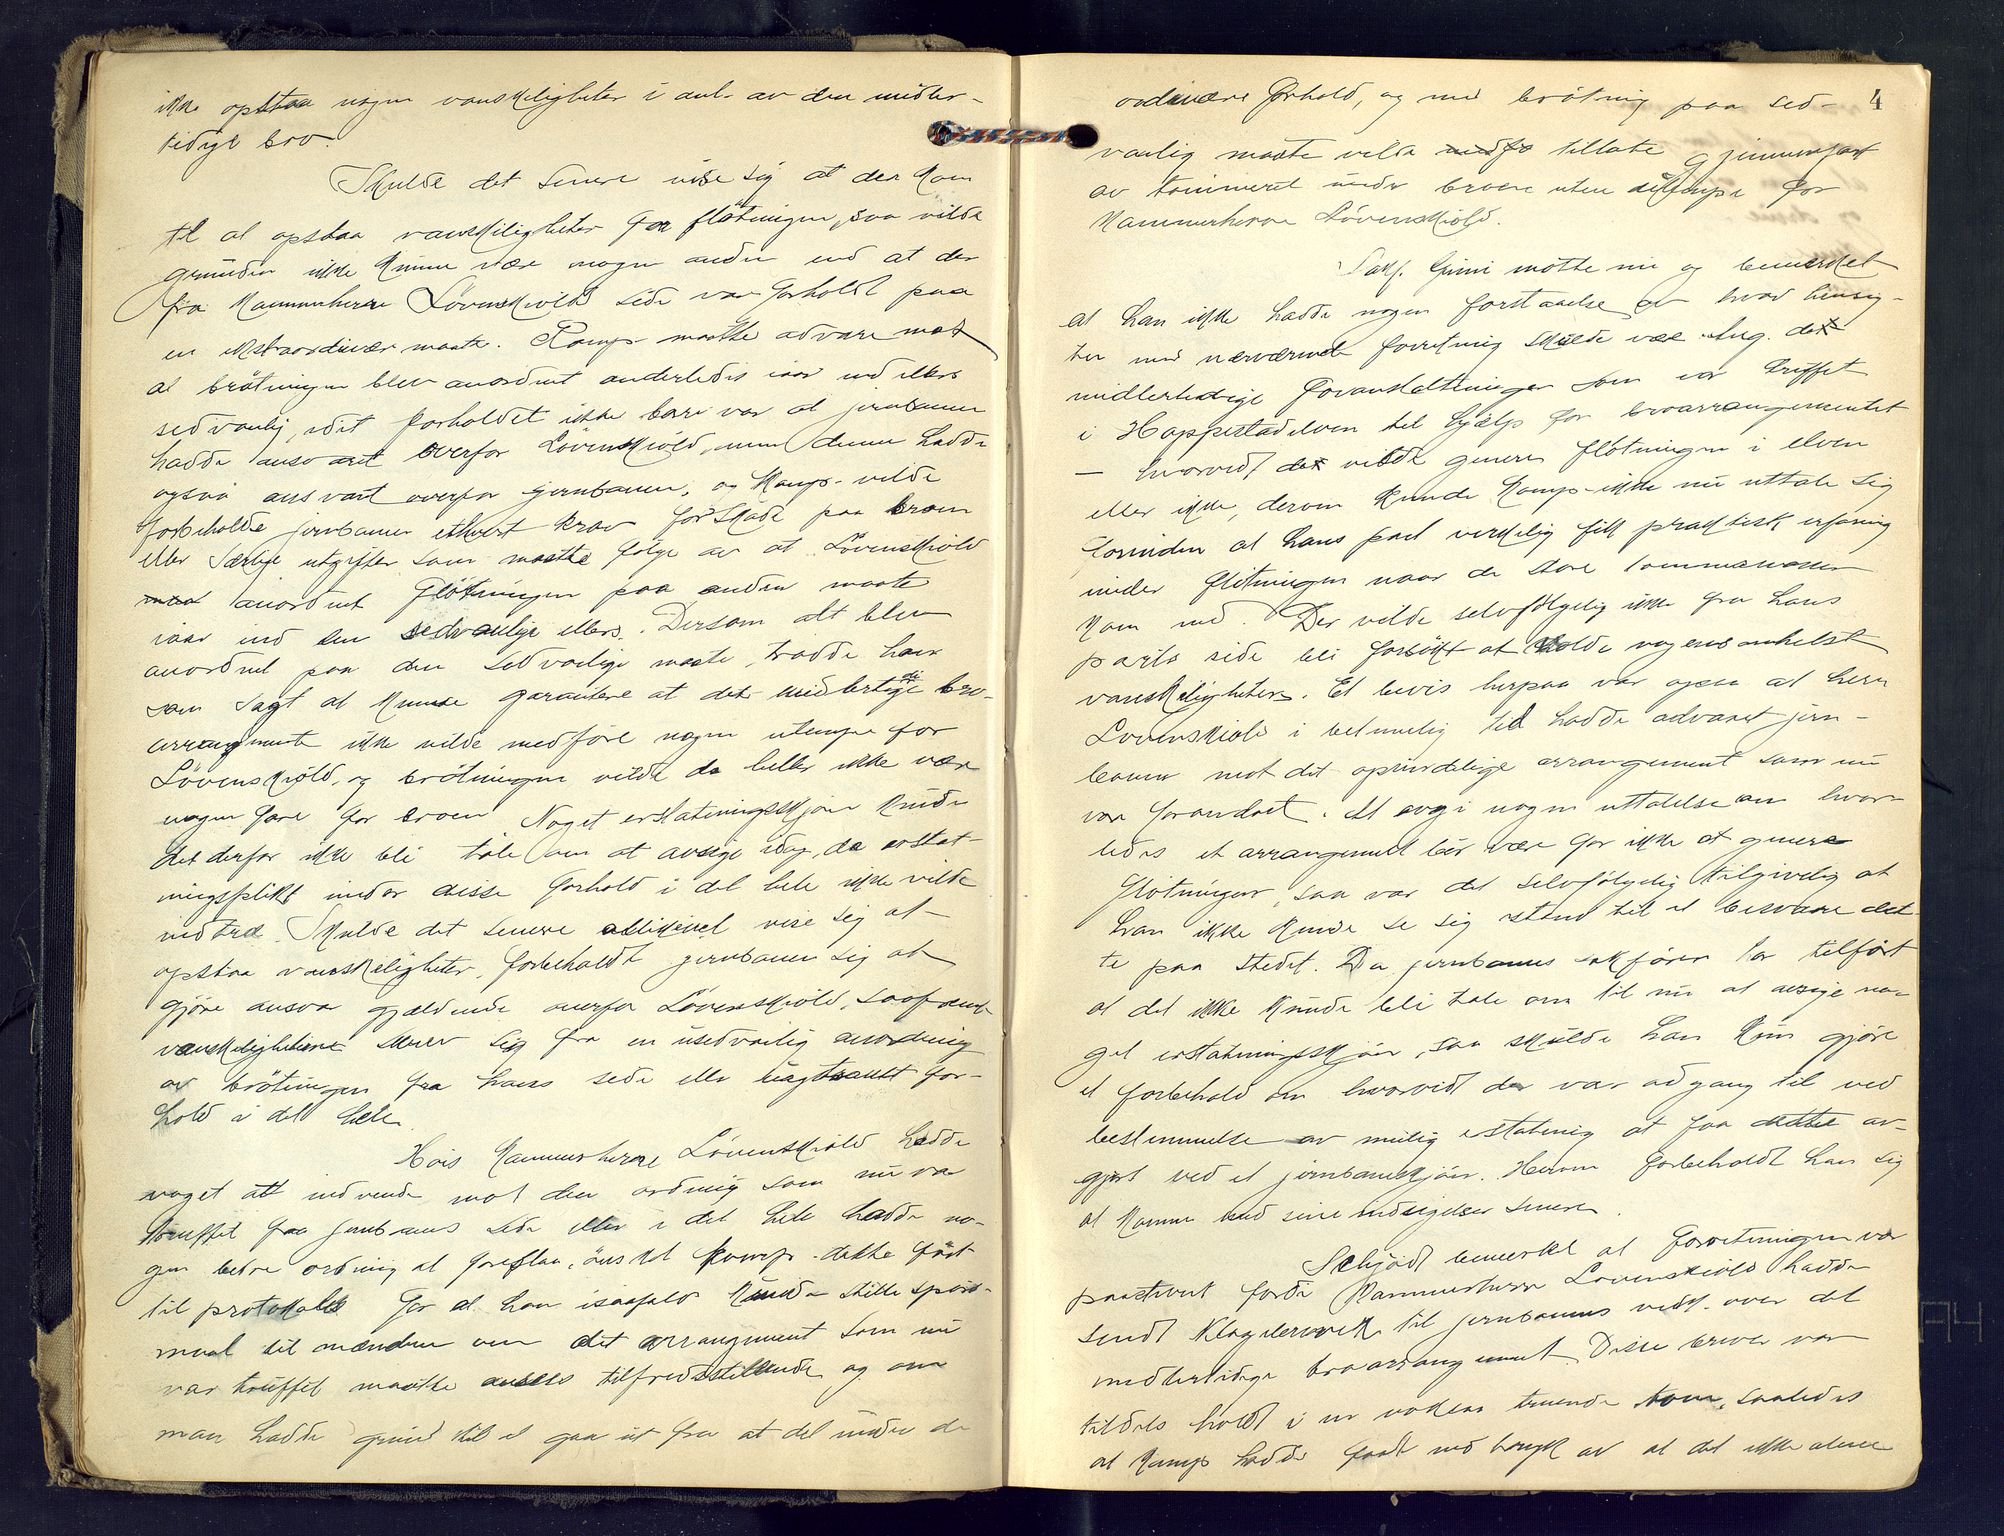 ikke opstaa nogen vanskeligheter i anl. av den midler-
tidige bro.
Skulde det senere vise sig at der kom
til at opstaa vanskeligheter for fløtningen, saa vilde
grunden ikke kunne være nogen anden end at der
fra Kammerherre Løvenskiolds side var forholdt paa
en ekstraordinær maate. Komp. maatte advare mot
at brøtningen blev anordnet anderledes iaar end ellers
sedvanlig, idet forholdet ikke bare var at jernbanen
hadde ansvaret overfor Løvenskiold, men denne hadde
ogsaa ansvaret overfor jernbanen, og Komp. vilde
forbeholde jernbanen ethvert krav for skade paa broen
eller særlige utgifter som maatte følge av at Løvenskiold
anordnet fløtningen paa anden maate
iaar end den sedvanlige ellers. Dersom alt blev
anordnet paa den sedvanlige maate, trodde han
som sagt at kunne garantere at det midlertidige bro-
arrangement ikke vilde medføre nogen ulempe for
Løvenskiold, og brøtningen vilde da heller ikke være
nogen fare for broen. Noget erstatningsskjøn kunde
det derfor ikke bli tale om at avsige idag, da erstat-
ningsplikt under disse forhold i det hele ikke vilde
indtræ. Skulde det senere allikevel vise sig at
opstaa vanskeligheter, forbeholdt jernbanen sig at
gjøre ansvar gjældende overfor Løvenskiold, saafremt
vanskelighetene skrev sig fra en usedvanlig anordning
av brøtningen fra hans side eller uagtsomt for-
hold i det hele.
Hvis Kammerherre Løvenskiold hadde
noget at indvende mot den ordning som nu var
truffet fra jernbanens side eller i det hele hadde no-
gen bedre ordning at foreslaa, ønsket Komp. dette ført
til protokols for at han isaafald kunde stille spørs-
maal til mændene om det arrangement som nu
var truffet maatte ansees tilfredsstillende og om
man hadde grund til at gaa ut fra at det under de
4
ordinære forhold, og med brøtning paa sed-
vanlig maate vilde tillate gjennemfart
av tømmeret under broen uten ulempe for
Kammerherre Løvenskiold.
Sakf. møtte nu og bemerket
at han ikke hadde nogen forstaaelse av hvad hensig-
ten med nærværende forretning skulde være. Ang. de
midlertidige foranstaltninger som var truffet
i Hoppestadelven til hjælp for broarrangementet
– hvorvidt det vilde genere fløtningen i elven
eller ikke, derom kunde Komp. ikke nu uttale sig
forinden at hans part virkelig fik praktisk erfaring
under fløtningen naar de store tømmermasser
kom ned. Der vilde selvfølgelig ikke fra hans
parts side bli forsøkt at volde nogensomhelst
vanskeligheter. Et bevis herpaa var ogsaa at herr
Løvenskiold i betimelig tid hadde advaret jern-
banen mot det oprindelige arrangement som nu
var forandret. At avgi nogen uttalelse om hvor-
ledes et arrangement bør være for ikke at genere
fløtningen, saa var det selvfølgelig tilgivelig at
han ikke kunde se sig istand til at besvare det-
te paa stedet. Da jernbanens sakfører har tilført
at det ikke kunde bli tale om til nu at avsige no-
get erstatningsskjøn, saa skulde han kun gjøre
et forbehold om hvorvidt der var adgang til ved
bestemmelse av mulig erstatning at faa dette av-
gjort ved et jernbaneskjøn. Herom forbeholdt han sig
at komme med sine indsigelser senere.
Schjødt bemerket at forretningen var
paastevnt fordi Kammerherre Løvenskiold hadde
sendt klageskrivelser til jernbanens vedk. over det
midlertidige broarrangement. Disse brever var
tildels holdt i en voksen truende tone, saaledes
at Komp. hadde faat indtryk av at det ikke alene